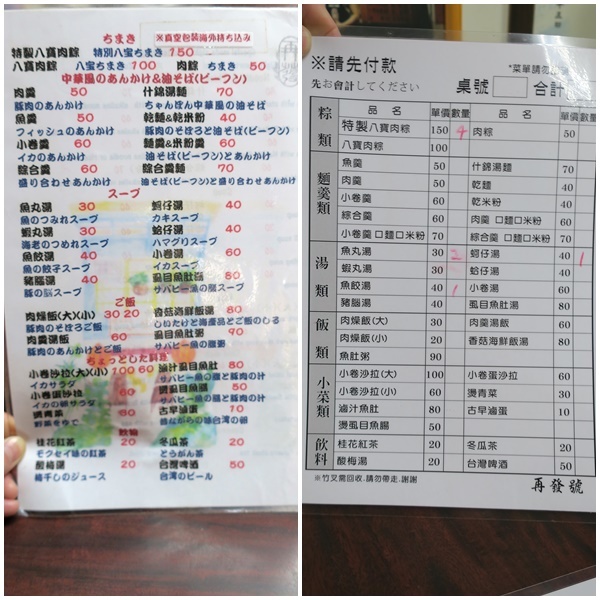 ちまき ※真空包装海外持ち込み
特製八寶肉粽 特別八宝ちまき 150
八寶肉粽 八宝ちまき 100 肉粽 ちまき 50
中華風のあんかけ&油そば(ビーフン)
肉羹 50 什錦湯麵 70
豚肉のあんかけ ちゃんぽん中華風の油そば
魚羹 50 乾麵&乾米粉 40
フィッシュのあんかけ 豚肉のそぼろと油そば(ビーフン)
小卷羹 60 麵羹&米粉羹 60
イカのあんかけ 油そば(ビーフンとあんかけ
綜合羹 60 綜合羹麵 70
盛り合わせあんかけ 油そば(ビーフン)と盛り合わせあんかけ
スープ
魚丸湯 30 蚵仔湯 40
魚のつみれスープ カキスープ
蝦丸湯 30 蛤仔湯 40
海老のつめれスープ ハマグリスープ
魚餃湯 40 小卷湯 60
魚の餃子スープ イカスープ
豬腦湯 40 虱目魚肚湯 80
豚の脳スープ サバヒー魚の腸スープ
ご飯
肉燥飯(大)(小) 30 20 香菇海鮮飯湯 80
豚肉のそぼろご飯 しいたけと海產品とご飯のしる
肉羹湯飯 60 虱目魚肚粥 90
豚肉のあんかけとご飯 サバヒー魚の腹粥
ちょっとした料理
小卷沙拉(大)(小) 100 60 滷汁虱目魚肚 80
イカサラダ サバヒー魚の腹と豚肉の汁
小卷蛋沙拉 60 燙虱目魚腸 50
イカの卵サラダ サバヒー魚の腸と豚肉の汁
燙青菜 30 古早滷蛋 10
野菜をゆで 昔ながらの味台湾の卵
飲物
桂花紅茶 20 冬瓜茶 20
モクセイ味の紅茶 とうがん茶
酸梅湯 20 台灣啤酒 50
梅干しのジュース 台湾のビール
※請先付款 *菜單請勿
先お會計してください 桌號 合計
品名 單價 數量 品名 單價 數量
粽類
特製八寶肉粽 150 4 肉粽 50
八寶肉粽 100
麵羹類
魚羹 50 什錦湯麵 70
肉羹 50 乾麵 40
小卷羹 60 乾米粉 40
綜合羹 60 肉羹 口麵口米粉 60
小卷羹 口麵口米粉 70 綜合羹 口麵口米粉 70
湯類
魚丸湯 30 2 蚵仔湯 40 1
蝦丸湯 30 蛤仔湯 40
魚餃湯 40 1 小卷湯 60
豬腦湯 40 虱目魚肚湯 80
飯類
肉燥飯(大) 30 肉羹湯飯 60
肉燥飯(小) 20 香菇海鮮飯湯 80
魚肚粥 90
小菜類
小卷沙拉(大) 100 小卷蛋沙拉 60
小卷沙拉(小) 60 燙青菜 30
滷汁魚肚 80 古早滷蛋 10
燙虱目魚腸 50
飲料
桂花紅茶 20 冬瓜茶 20
酸梅湯 20 台灣啤酒 50
※竹叉需回收.請勿帶走.謝謝 再發號